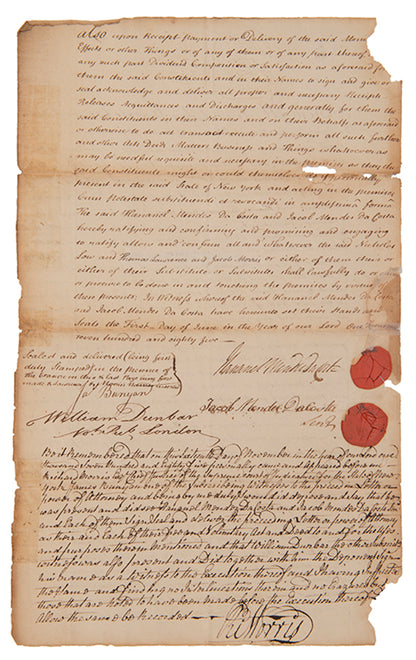 also upon Receipt payment or Delivery of the said Money
Effects or other Things or of any of them or of any part thereof
any such part Dividend Composition or Satisfaction as aforesaid for
them the said Constituents and in their Names to sign and give
seal acknowledge and deliver all proper and necessary Receipts
Releases Acquittances and Discharges and generally for them the
said Constituents in their Names and on their Behalf as aforesaid
or otherwise to do act transact execute and perform all such further
and other Acts Deeds Matters Business and Things whatsoever as
may be needful requisite and necessary in the premises as they the
said Constituents might or could themselves
present in the said State of New York and acting in the premises
Cum Potestate substituendi et revocandi in amplissima forma
The said Hananel Mendes Da Costa and Jacob Mendes Da Costa
hereby ratifying and confirming and promising and engaging
to ratify allow and confirm all and whatsoever the said Nicholas
Low and Thomas Lawrence and Jacob Morris or either of them their or
either of their Substitute or Substitutes shall lawfully do or
or procure to be done in and touching the premises by virtue of
these presents. In Witness whereof the said Hananel Mendes Da Costa
and Jacob Mendes Da Costa have hereunto set their Hands and
Seals the First day of June in the Year of our Lord One Thousand
seven hundred and eighty five
Sealed and delivered (being first
duly Stampd) in the presence of
Bunyan
Hananel Mendes da Costa
Jacob Mendes Da Costa
William Dunbar
Not. Pub. London
Be it remembered that on the day of November in the year of our Lord one
thousand seven hundred and eighty five personally came and appeared before me
Richard Morris Chief Justice of the Supreme Court of Judicature for the State of New
York James one of the Subscribing Witnesses to the preceding Letter or
power of Attorney and being by me duly sworn did depose and say that he
was present and did see Hananel Mendes Da Costa and Jacob Mendes Da Costa
and Each of them Sign Seal and deliver the preceding Letter or power of Attorney
as their and Each of their free and Voluntary Act and Deed to and for the uses
and purposes therein mentioned and that William Dunbar the other subscribing
witness was also present and Did together with him the Deponent Sign
his name as a witness to the Execution thereof and I having inspected
the same and finding no Interlineations therein and no Erasures but
those that are noted to have been made before the Execution thereof
allow the same to be recorded
Ric Morris